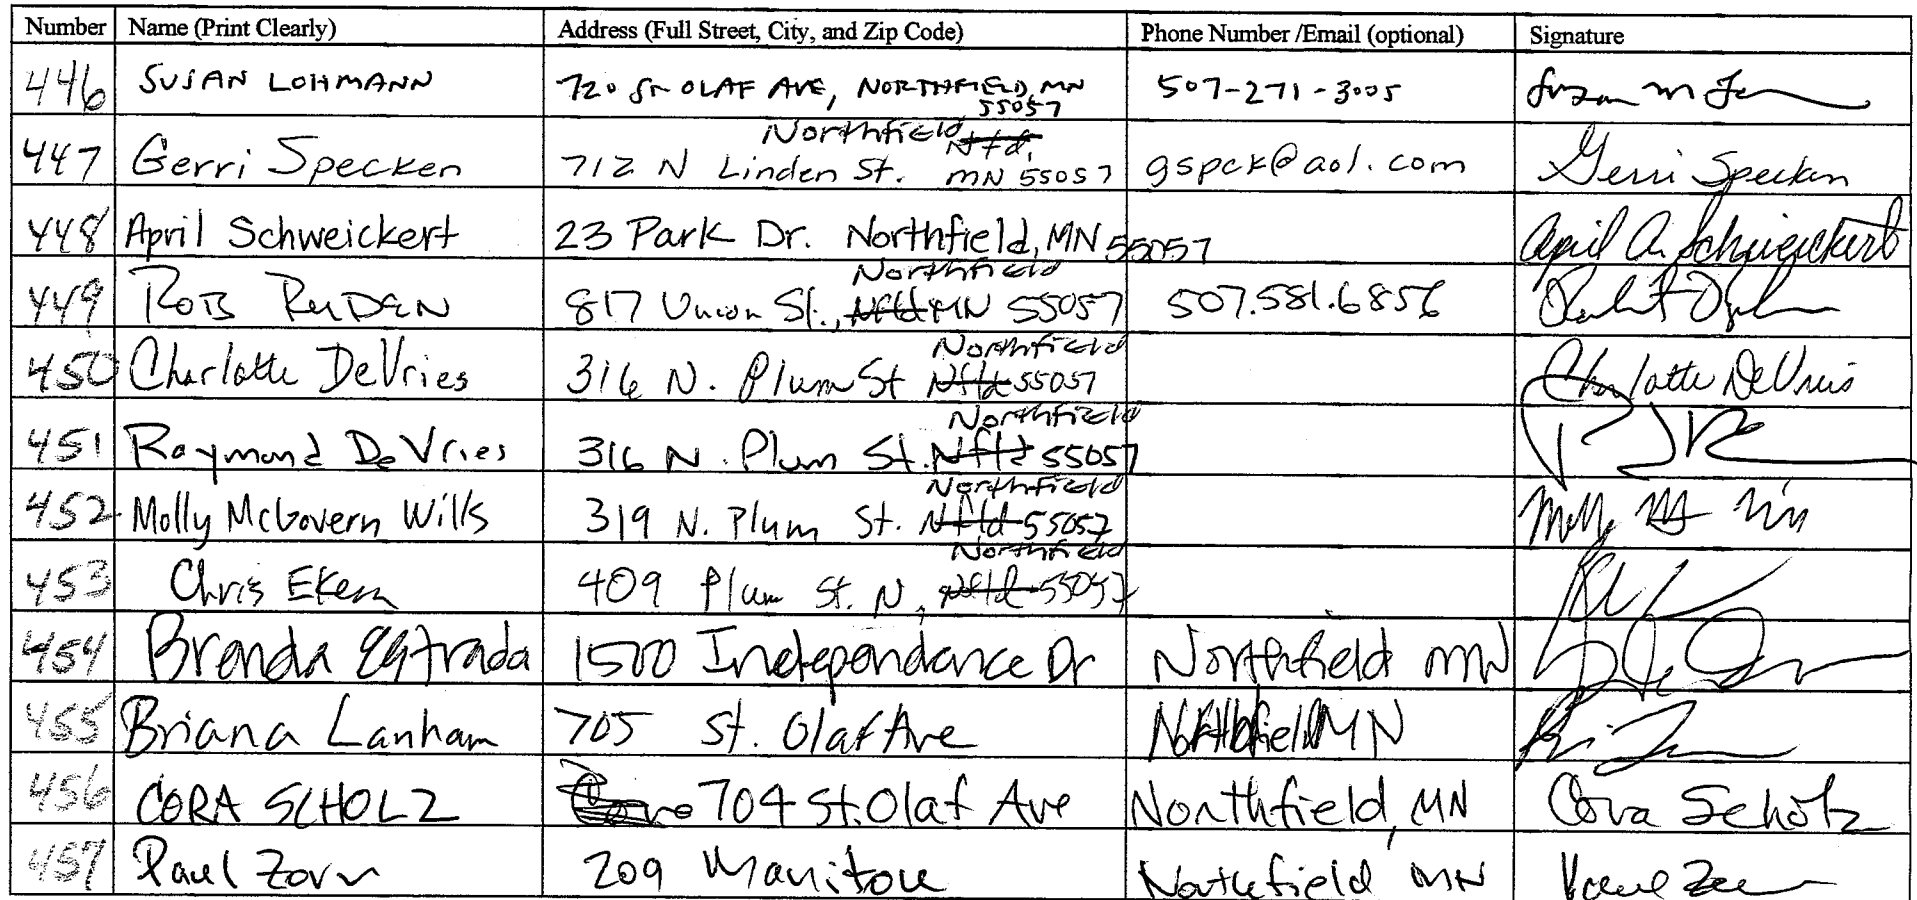 Number Name (Print Clearly) Address (Full Street, City, and Zip Code) Phone Number /Email (optional) Signature
446 SUSAN LOHMANN 720 ST OLAF AVE, NORTHFIELD, MN 55057 507-271-3005 Susan M
447 Gerri Specken 712 N Linden St. Northfield Nfd, MN 55057 gspck@aol.com Gerri Specken
448 April Schweickert 23 Park Dr. Northfield, MN 55057 April A. Schweickert
449 ROB RUDEN 817 Union St., Northfield Nfld MN 55057 507.581.6856
450 Charlotte DeVries 316 N. Plum St Northfield Nfld 55057 Charlotte DeVries
451 Raymond DeVries 316 N. Plum St. Northfield Nfld 55057
452 Molly McGovern Wills 319 N. Plum St. Northfield Nfld 55057
453 Chris 409 Plum St. N, Northfield Nfld 55057
454 Brenda Estrada 1500 Independance Dr Northfield MN
455 Briana Lanham 705 St. Olaf Ave Northfield MN
456 CORA SCHOLZ 704 St. Olaf Ave Northfield, MN Cora Scholz
457 Paul Zorn 209 Manitou Northfield MN Paul